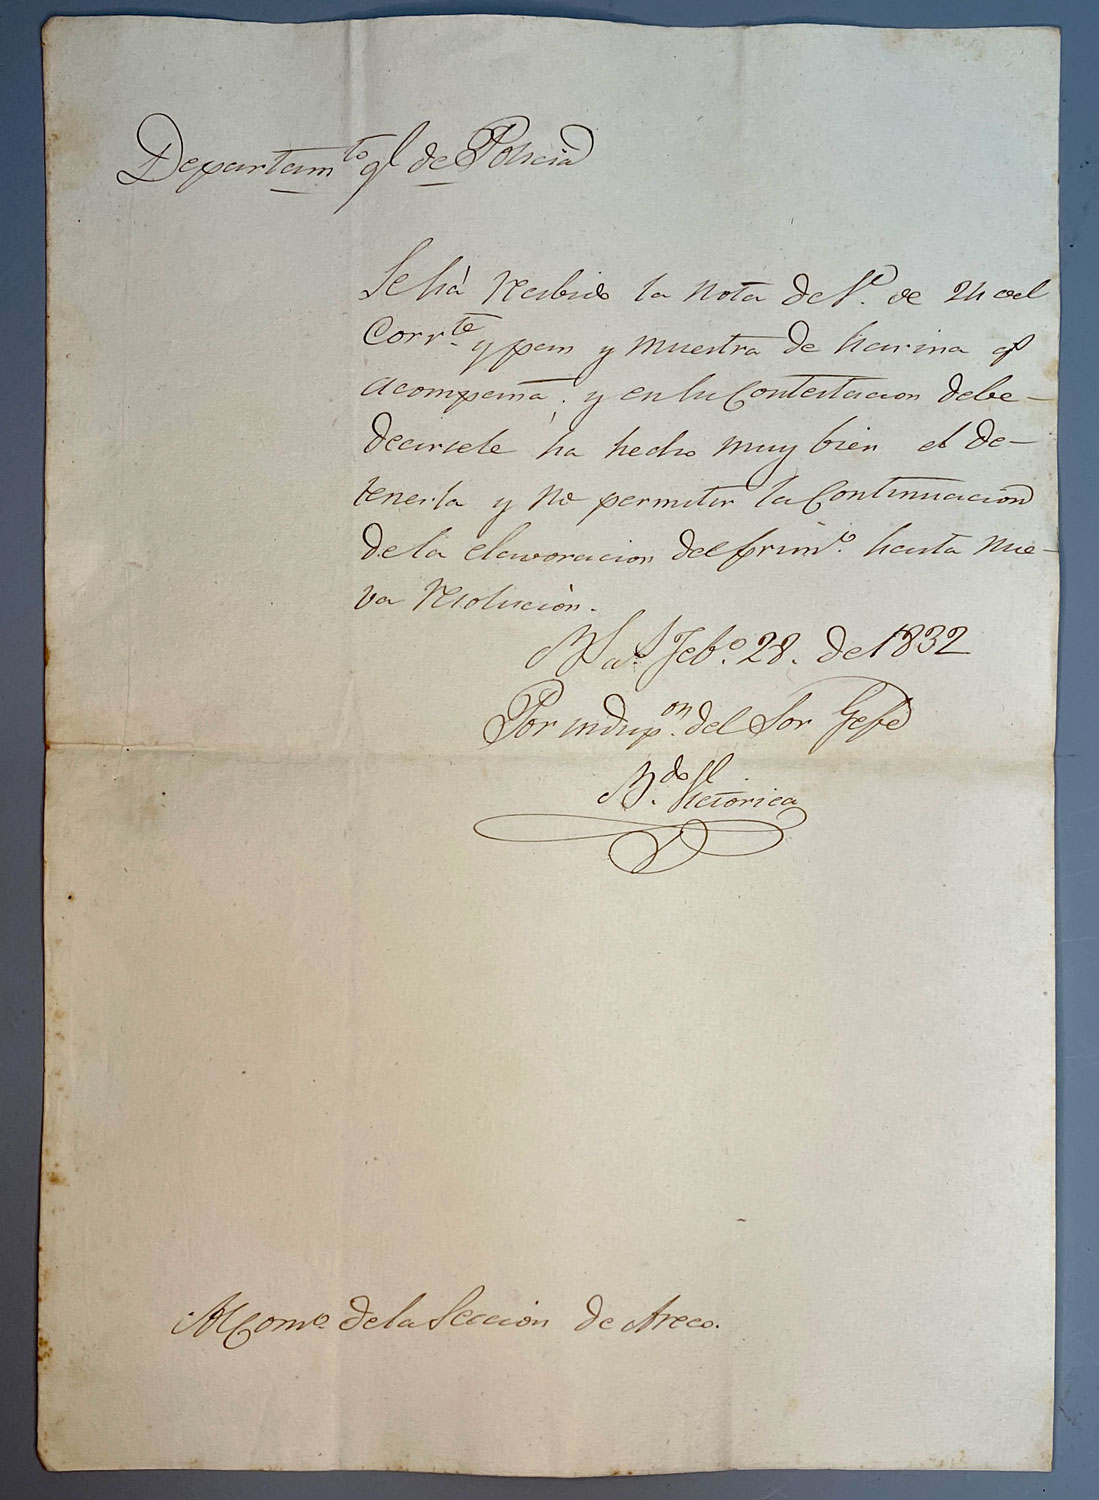 Departam.to gl de Policia
Se há recibido la nota de V. de 24 del
Corr.te y pan y muestra de harina q
acompaña, y en su Contestacion debe
decirsele ha hecho muy bien el de-
tenerla y no permitir la Continuacion
de la elavoracion del prim.o hasta nue-
va resolucion.
Bs. As. Feb.o 28. de 1832
Por indisp.on del Sor Gefe
B.do Victorica
Al Com.o de la Seccion de Areco.